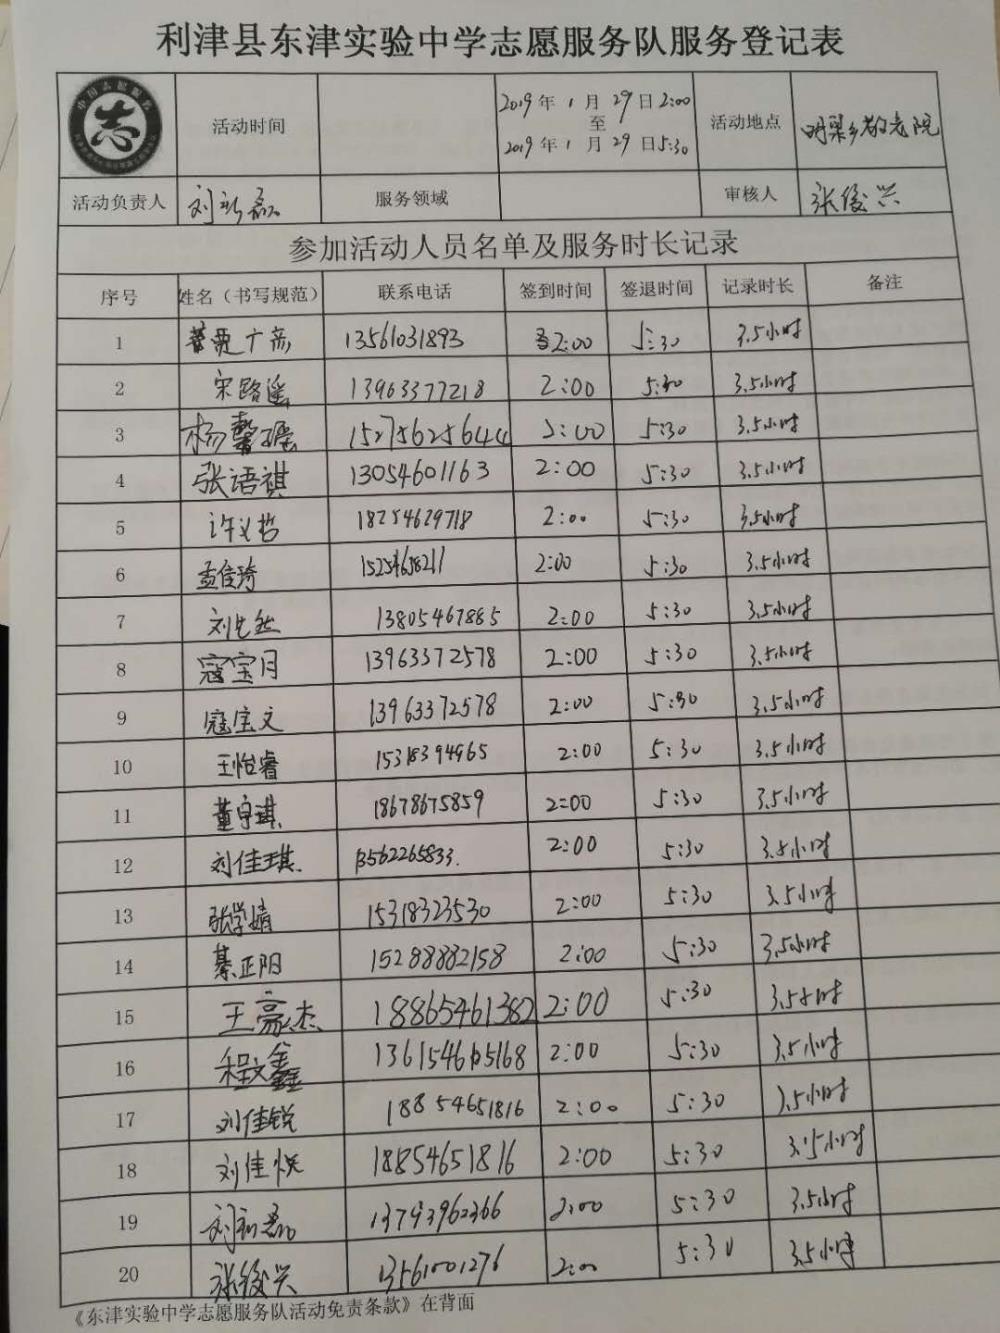 利津县东津实验中学志愿服务队服务登记表
中国志愿服务
志
活动时间 2019年1月29日2:00 至 2019年1月29日5:30 活动地点 明集乡敬老院
活动负责人 服务领域 审核人 张俊兴
参加活动人员名单及服务时长记录
序号 姓名（书写规范） 联系电话 签到时间 签退时间 记录时长 备注
1 13561031893 2:00 5:30 3.5小时
2 宋路遥 13963377218 2:00 5:30 3.5小时
3 杨馨瑶 15275625644 2:00 5:30 3.5小时
4 张语祺 13054601163 2:00 5:30 3.5小时
5 许义哲 18254629718 2:00 5:30 3.5小时
6 孟佳琦 15254658211 2:00 5:30 3.5小时
7 13805467885 2:00 5:30 3.5小时
8 寇宝月 13963372578 2:00 5:30 3.5小时
9 寇宝文 13963372578 2:00 5:30 3.5小时
10 王怡睿 15318394965 2:00 5:30 3.5小时
11 董宇琪 18678675859 2:00 5:30 3.5小时
12 刘佳琪 13562265833 2:00 5:30 3.5小时
13 张学婧 15318323530 2:00 5:30 3.5小时
14 綦正阳 15288882158 2:00 5:30 3.5小时
15 王豪杰 18865461382 2:00 5:30 3.5小时
16 程文鑫 2:00 5:30 3.5小时
17 刘佳锐 18854651816 2:00 5:30 3.5小时
18 刘佳悦 18854651816 2:00 5:30 3.5小时
19 13793962366 2:00 5:30 3.5小时
20 张俊兴 13561001276 2:00 5:30 3.5小时
《东津实验中学志愿服务队活动免责条款》在背面